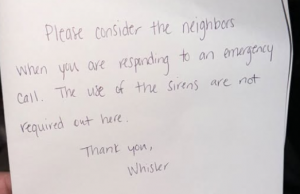 Please consider the neighbors
when you are responding to an emergency
call. The use of the sirens are not
required out here.
Thank you,
Whisler